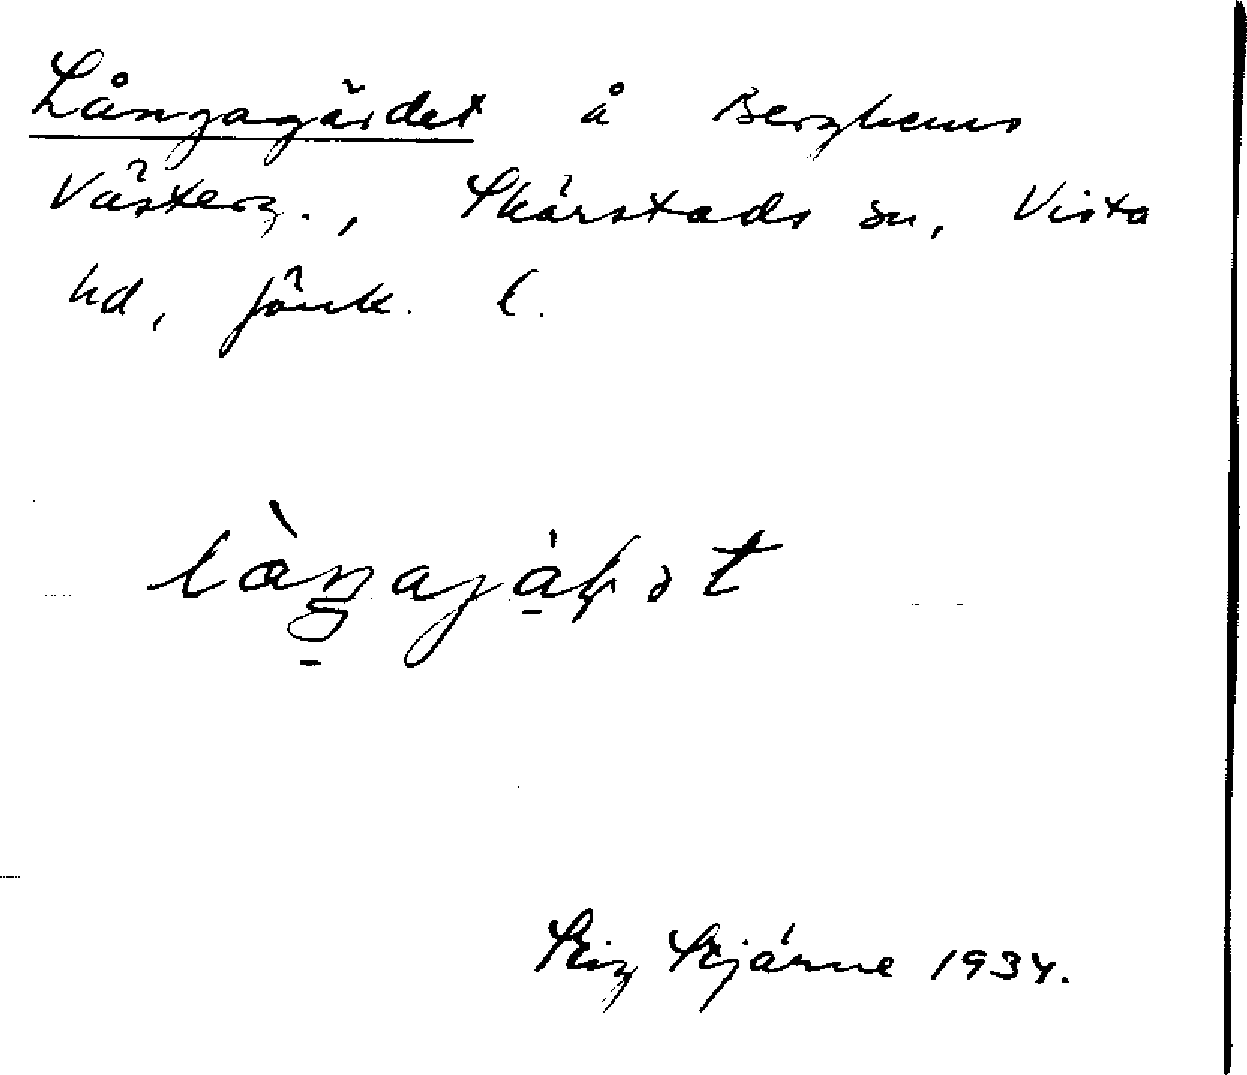 Långagärdet å Berghems
Västerg., Skärstads sn, Vista
hd, Jönk. l.
Stig Stjärne 1934.